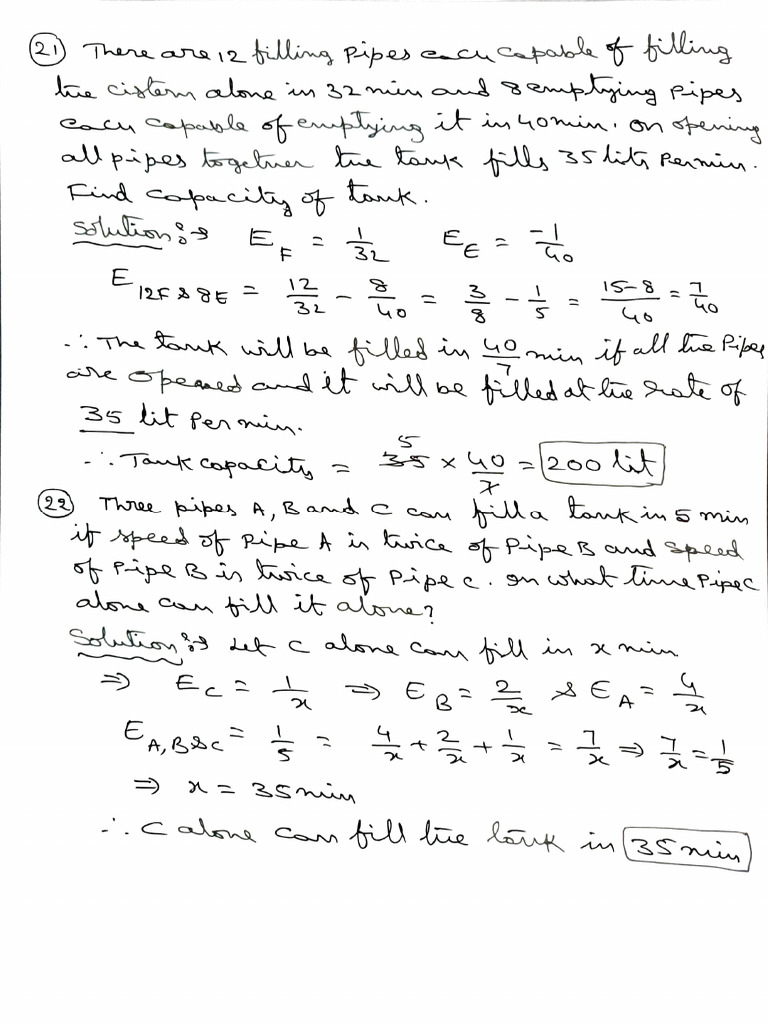 21) There are 12 filling pipes each capable of filling
the cistern alone in 32 min and 8 emptying pipes
each capable of emptying it in 40 min. on opening
all pipes together the tank fills 35 lits per min.
Find capacity of tank.
Solution :→ E_F = 1/32 E_E = -1/40
E_{12F & 8E} = 12/32 - 8/40 = 3/8 - 1/5 = (15-8)/40 = 7/40
∴ The tank will be filled in 40/7 min if all the Pipes
are opened and it will be filled at the rate of
35 lit per min.
∴ Tank capacity = 35 5 × 40/7 = 200 lit
22) Three pipes A, B and C can fill a tank in 5 min
if speed of pipe A is twice of Pipe B and speed
of Pipe B is twice of Pipe C. In what time Pipe C
alone can fill it alone?
Solution :→ Let C alone can fill in x min
⇒ E_C = 1/x ⇒ E_B = 2/x & E_A = 4/x
E_{A,B&C} = 1/5 = 4/x + 2/x + 1/x = 7/x ⇒ 7/x = 1/5
⇒ x = 35 min
∴ C alone can fill the tank in 35 min